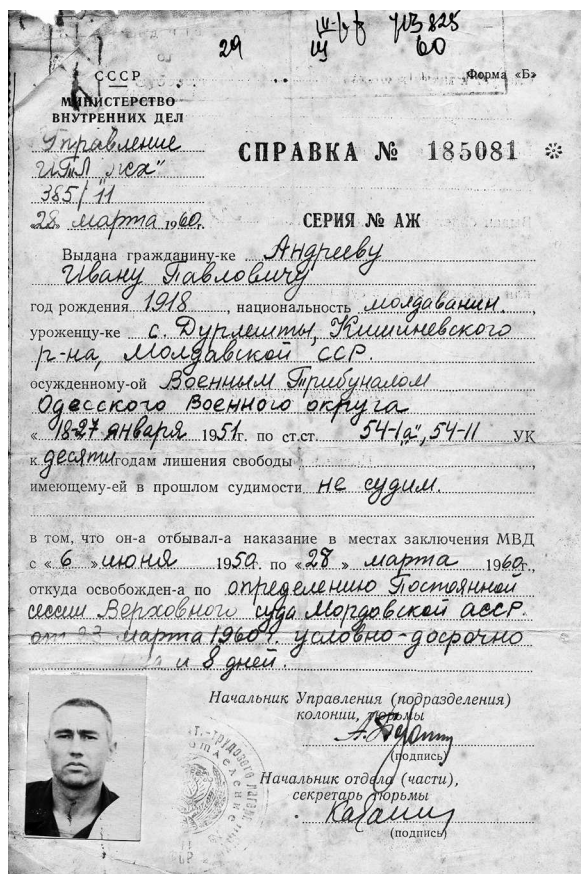 29 60
СССР
Форма «Б»
МИНИСТЕРСТВО
ВНУТРЕННИХ ДЕЛ
Управление
ИТЛ "ЖХ"
385/11
СПРАВКА № 185081
«28» марта 1960г.
СЕРИЯ № АЖ
Выдана гражданину-ке Андрееву
Ивану Павловичу
год рождения 1918, национальность молдаванин.,
уроженцу-ке с. Дурлешты, Кишиневского
р-на, Молдавской ССР.
осужденному-ой Военным Трибуналом
Одесского Военного округа
«18-27 января 1951 г. по ст.ст. 54-1"а", 54-11 УК
к десяти годам лишения свободы
имеющему-ей в прошлом судимости не судим.
в том, что он-а отбывал-а наказание в местах заключения МВД
с «6» июня 1950 г. по «28» марта 1960г.,
откуда освобожден-а по определению Постоянной
сессии Верховного суда Мордовской АССР.
от 23 марта 1960 г. условно-досрочно
и 8 дней.
Начальник Управления (подразделения)
колонии, тюрьмы
(подпись)
Начальник отдела (части),
секретарь тюрьмы
(подпись)